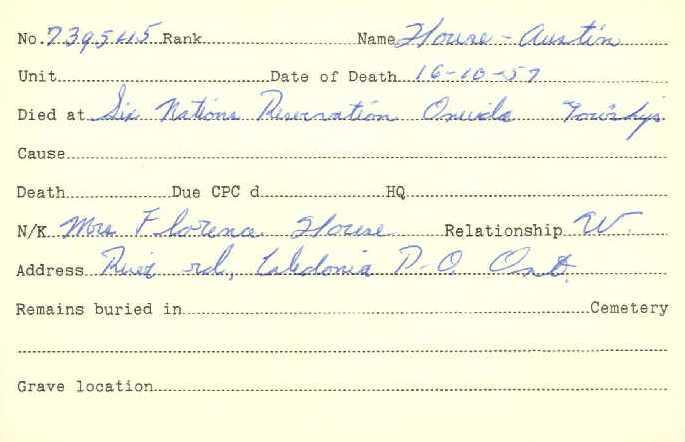 No. 739545 Rank Name House - Austin
Unit Date of Death 16-10-57
Died at Six Nations Reservation Oneida
Cause
Death Due CPC d HQ
N/K Mrs Florence House Relationship W.
Address River rd, Caledonia P.O. Ont.
Remains buried in Cemetery
Grave location